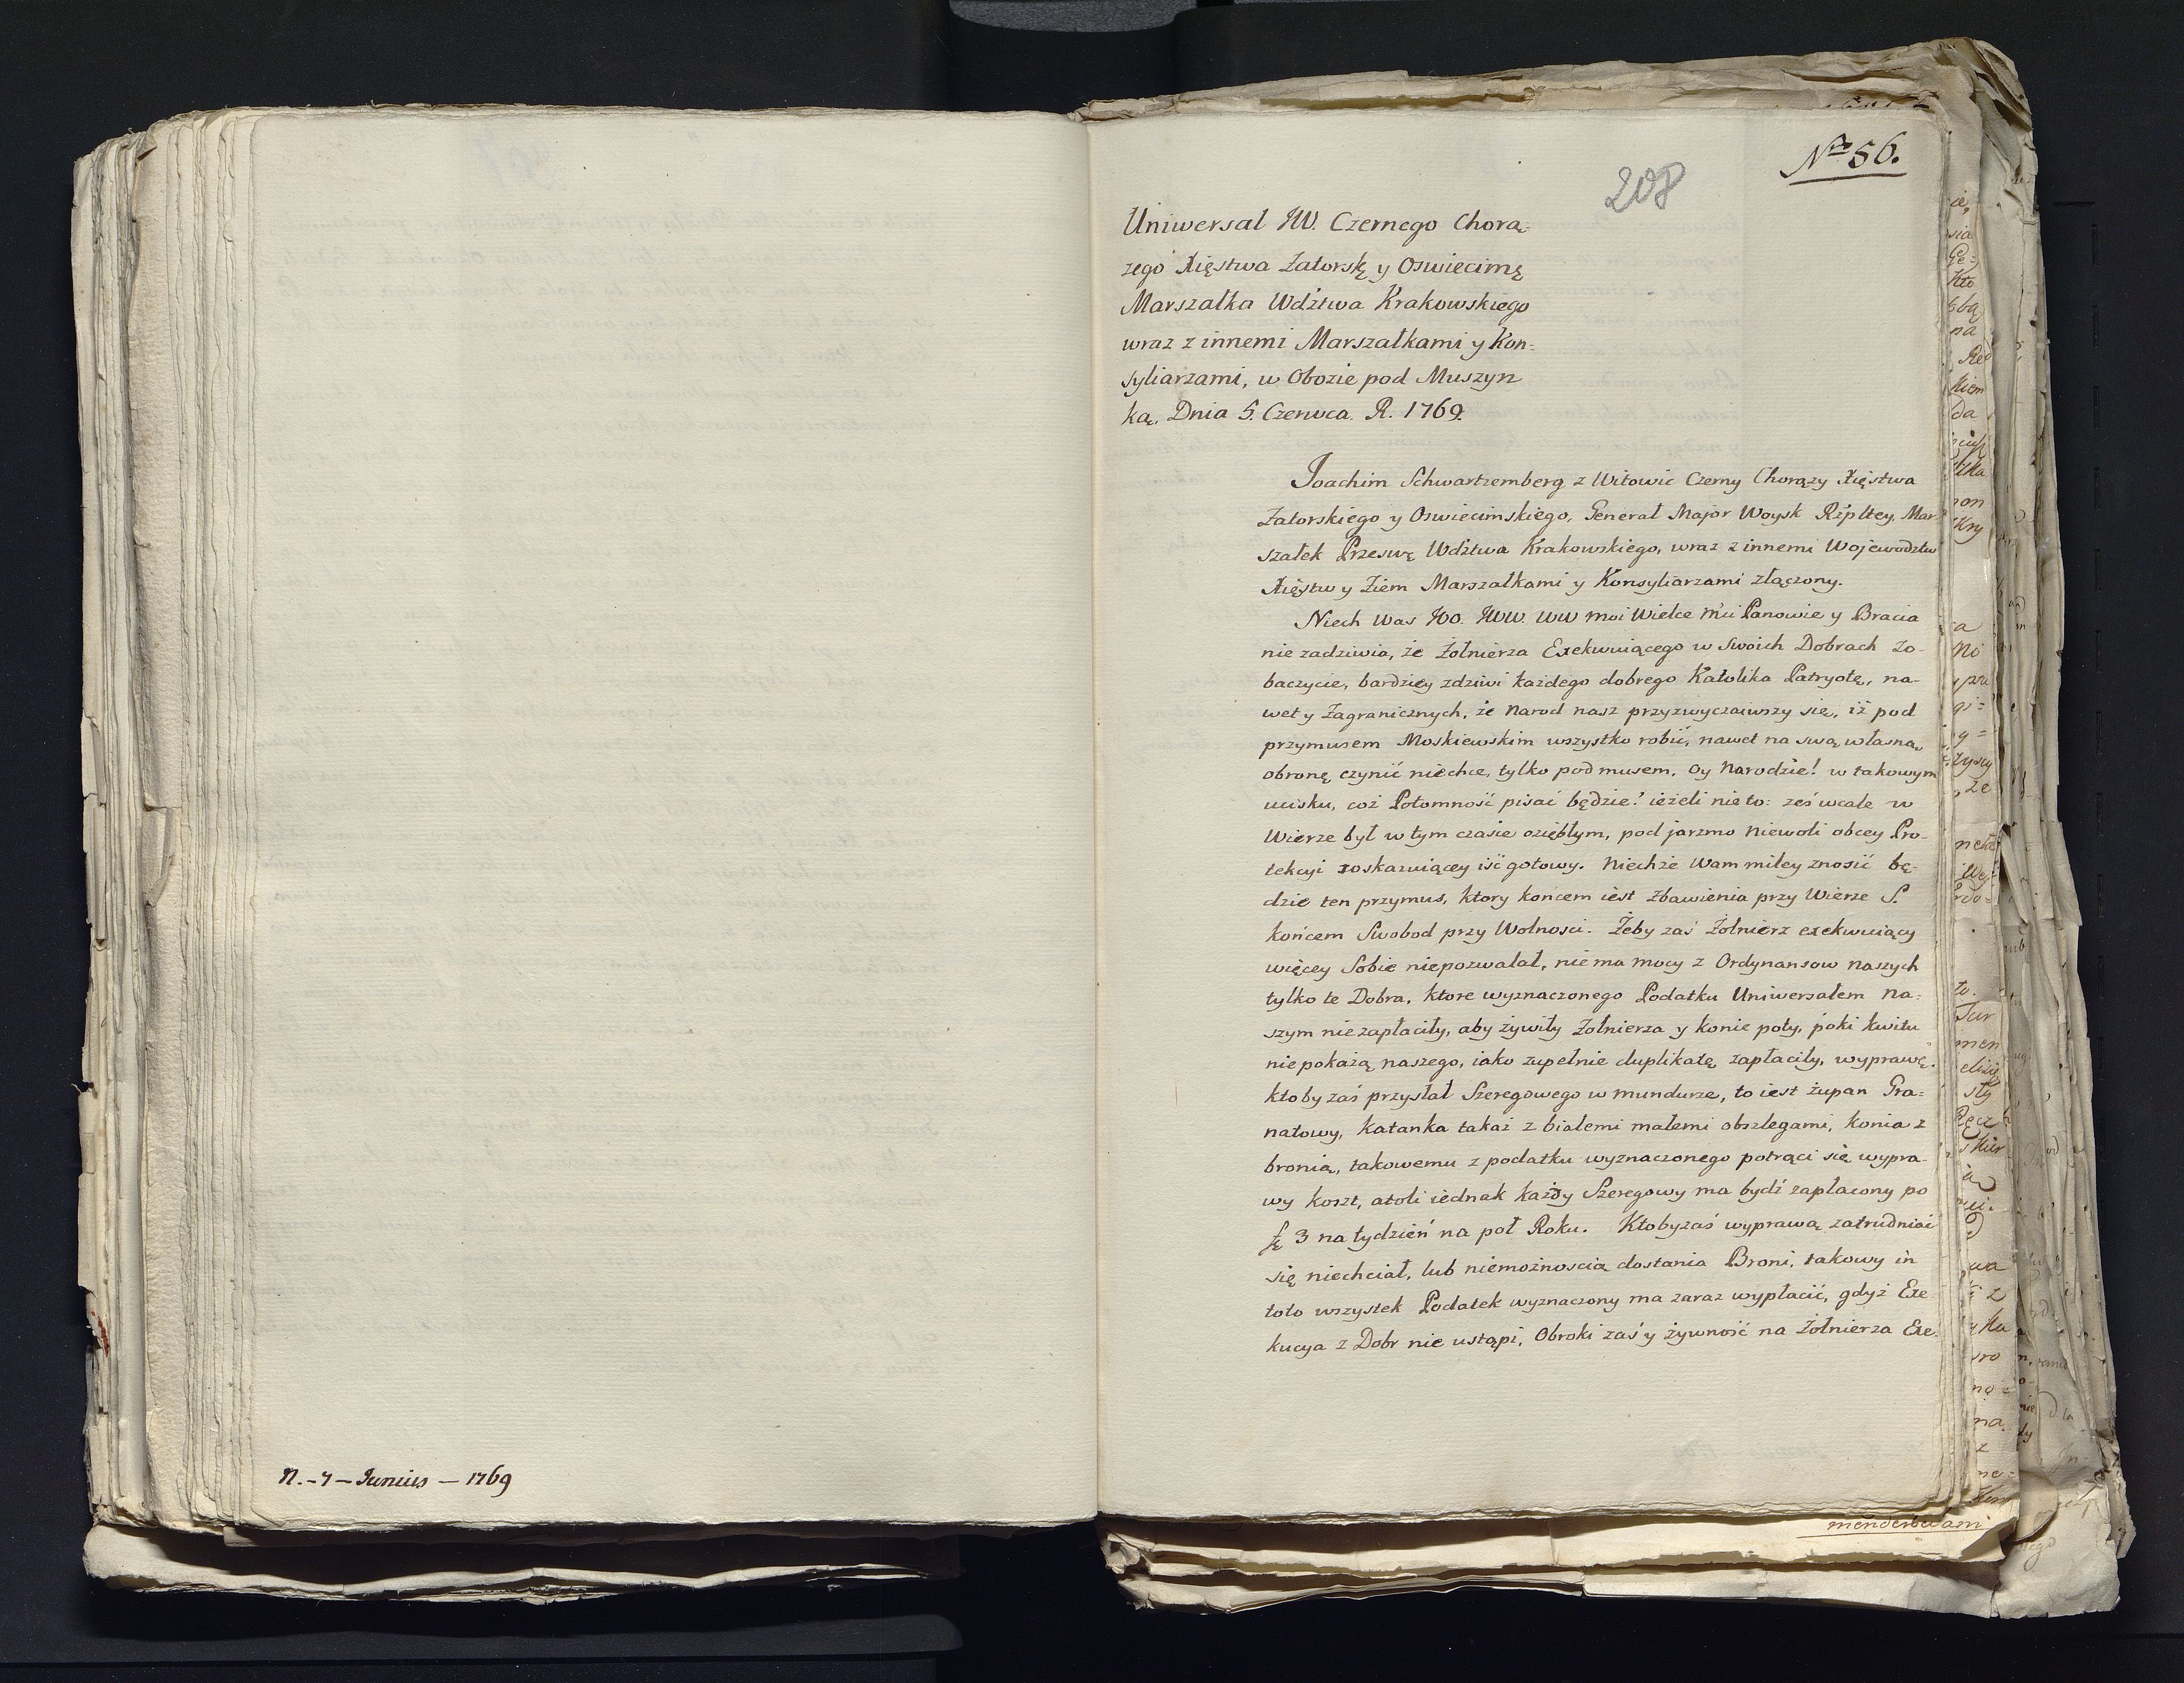 n. - 7 - Junius - 1769
Nro 56.
208
Uniwersał JW. Czernego Chorą-
zego Xięstwa Zatorsk̨ y Oswiecim̨
Marszałka Wdztwa Krakowskiego
wraz z innemi Marszałkami y Kon=
syliarzami, w Obozie pod Muszyn
ką. Dnia 5. Czerwca. R. 1769.
Joachim Schwartzemberg z Witowic Czerny Chorązy Xięstwa
Zatorskiego y Oswiecimskiego, Generał Major Woysk Rzpltey, Mar-
szałek Przesw̨ Wdztwa Krakowskiego, wraz z innemi Wojewodztw
Xięstw y Ziem Marszałkami y Konsyliarzami złączony.
Niech Was JO. JWW. WW moi Wielce Mći Panowie y Bracia
nie zadziwia, że Żołnierza Exekwuiącego w Swoich Dobrach zo-
baczycie, bardziey zdziwi każdego dobrego Katolika Patryotę, na-
wet y Zagranicznych, że Narod nasz przyzwyczaiwszy się, iż pod
przymusem Moskiewskim wszystko robić, nawet na swą własną
obronę czynić niechce, tylko pod musem. Oy Narodzie! w takowym
ucisku, coż Potomność pisać będzie? ieżeli nie to: żeś wcale w
Wierze był w tym czasie oziębłym, pod jarzmo Niewoli obcey Pro-
tekcyi roskazuiącey iść gotowy. Niechże Wam miley znosić bę-
dzie ten przymus, ktory końcem iest Zbawienia przy Wierze S.
końcem Swobod przy Wolnosci. Żeby zaś Żołnierz exekwuiący
więcey Sobie niepozwalał, nie ma mocy z Ordynansow Naszych
tylko te Dobra, ktore wyznaczonego Podatku Uniwersałem Na=
szym niezapłaciły, aby żywiły Żołnierza y konie poty, poki kwitu
niepokażą naszego, iako zupełnie duplikatę zapłaciły, wyprawę.
ktoby zaś przysłał Szeregowego w mundurze, to iest żupan Gra=
natowy, Katanka takaż z białemi małemi obszlegami, konia z
bronią, takowemu z podatku wyznaczonego potrąci się wypra-
wy koszt, atoli iednak każdy Szeregowy ma bydź zapłacony po
3 na tydzień na poł Roku. Ktobyzaś wyprawą zatrudniać
się niechciał, lub niemożnoscią dostania Broni, takowy in
toto wszystek Podatek wyznaczony ma zaraz wypłacić, gdyż Exe-
kucya z Dobr nie ustąpi, Obroki zaś y żywność na Żołnierza Exe-